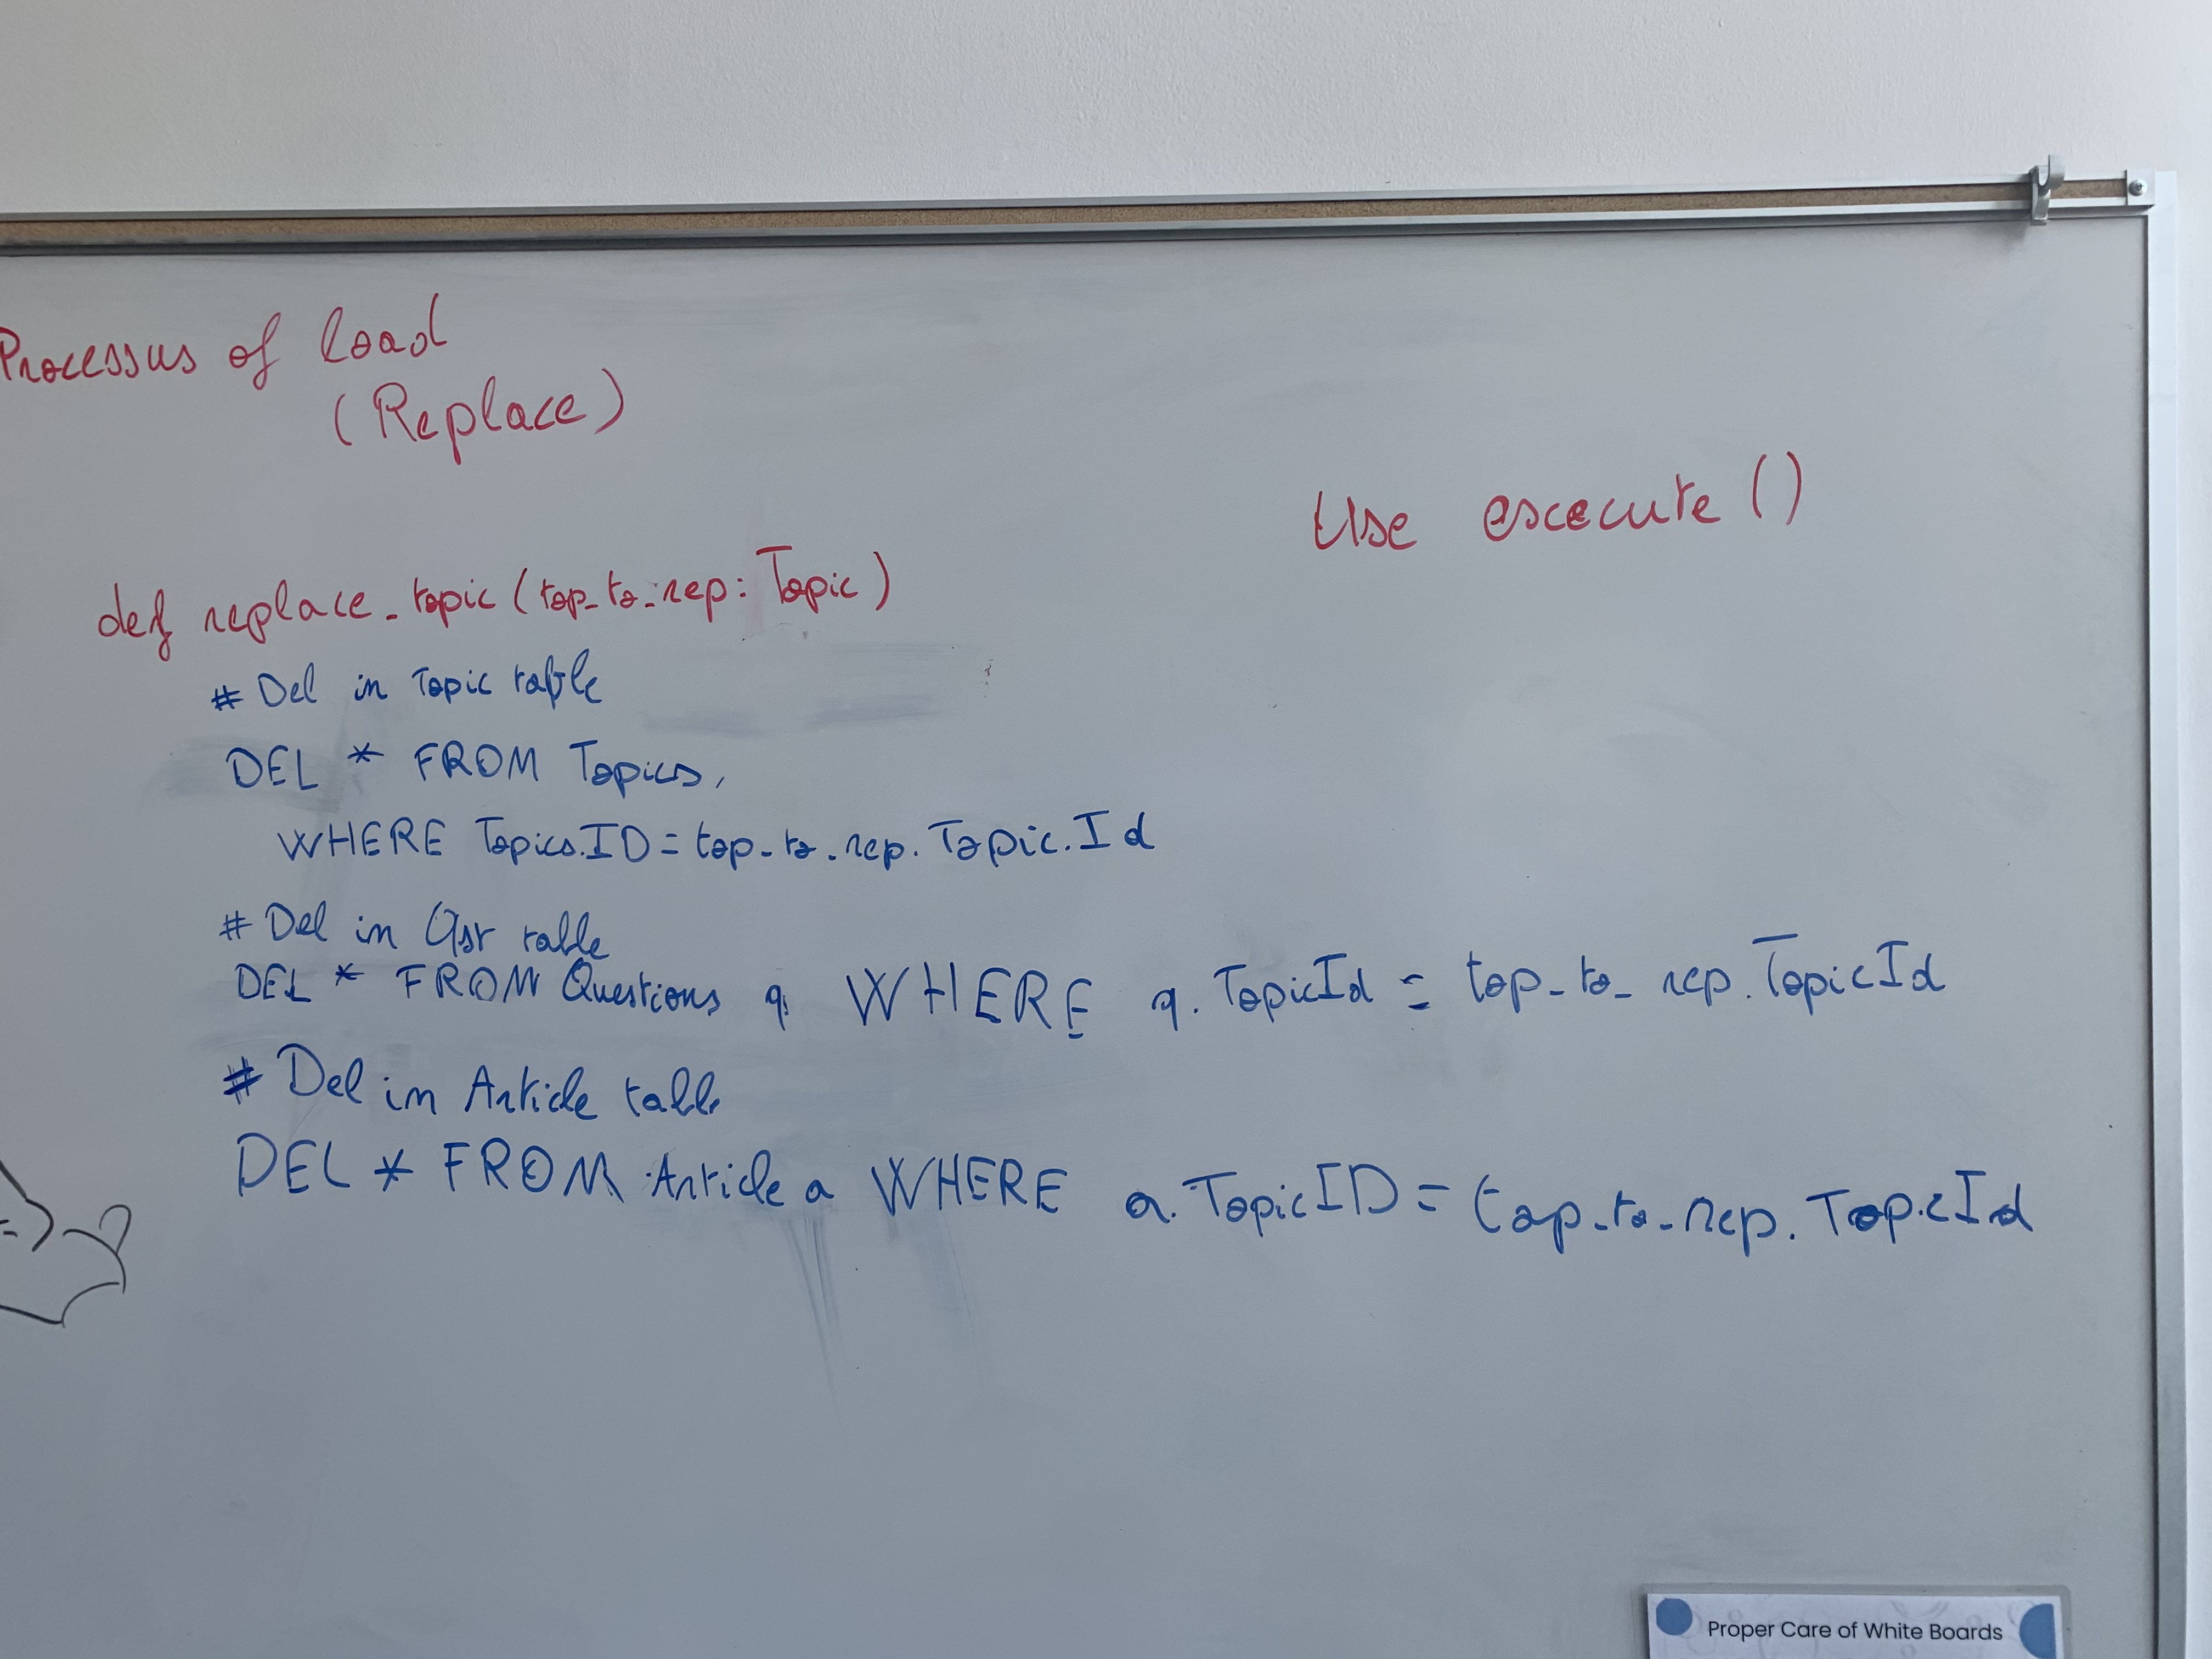 Processus of load
(Replace)
Use escecute ()
def replace_topic (top_to_rep: Topic)
# Del in Topic table
DEL * FROM Topics,
WHERE Topics.ID = top_to_rep.Topic.Id
# Del in Qst table
DEL * FROM Questions q WHERE q.TopicId = top_to_rep.TopicId
# Del in Article table
DEL * FROM Article a WHERE a.TopicID = top_to_rep.TopicId
=>
Proper Care of White Boards